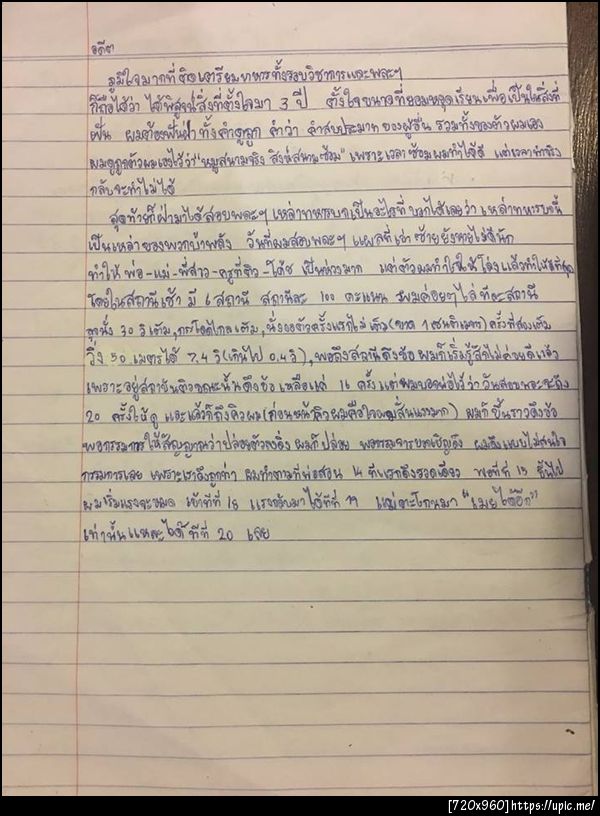 อดีต
ภูมิใจมากที่ติดเตรียมทหารทั้งรอบวิชาการและพละฯ
ก็ถือได้ว่า ได้พิสูจน์สิ่งที่ตั้งใจมา 3 ปี ตั้งใจขนาดที่ยอมหยุดเรียนเพื่อเป็นในสิ่งที่
ฝัน ผมต้องฟันฝ่า ทั้งคำดูถูก คำว่า คำสบประมาท ของผู้อื่น รวมทั้งของตัวผมเอง
ผมดูถูกตัวผมเองไว้ว่า "หมูสนามจริง สิงห์สนามซ้อม" เพราะเวลาซ้อมผมทำได้ดี แต่เวลาทำจริง
กลับจะทำไม่ได้
สุดท้ายก็ผ่ามาได้สอบพละฯ เหล่าทหารบกเป็นอะไรที่ บอกได้เลยว่า เหล่าทหารบกนี้
เป็นเหล่าของพวกบ้าพลัง วันที่ผมสอบพละฯ แผลที่เข่าซ้ายยังหายไม่ดีนัก
ทำให้ พ่อ-แม่-พี่สาว-ครูที่ติว-โค้ช เป็นห่วงมาก แต่ตัวผมทำใจให้โล่งแล้วทำให้ดีที่สุด
โดยในสถานีเช้า มี 6 สถานี สถานีละ 100 คะแนน ผมค่อยๆไล่ทีละสถานี
ลุกนั่ง 30 วิ เต็ม, กระโดดไกลเต็ม, นั่งงอตัวครั้งแรกไม่เต็ม(ขาด 1 เซนติเมตร) ครั้งที่สองเต็ม
วิ่ง 50 เมตรได้ 7.4 วิ (เกินไป 0.4 วิ), พอถึงสถานีดึงข้อ ผมก็เริ่มรู้สึกไม่ค่อยดีแล้ว
เพราะอยู่สถาบันติวขณะนั้นดึงข้อ เหลือแค่ 16 ครั้ง แต่ผมบอกพ่อไว้ว่า วันสอบพละจะดึง
20 ครั้งให้ดู และแล้วก็ถึงคิวผม (ก่อนหน้าคิวผมคือใจผมสั่นแรงมาก) ผมก็ขึ้นราวดึงข้อ
พอกรรมการให้สัญญาณว่าปล่อยตัวลงดิ่ง ผมก็ปล่อย พอกรรมการบอกเชิญดึง ผมดึงแบบไม่สนใจ
กรรมการเลย เพราะเราดึงถูกท่า ผมทำตามที่พ่อสอน 14 ทีแรกดึงรวดเดียว พอทีที่ 15 ขึ้นไป
ผมเริ่มแรงจะหมด เข้าทีที่ 18 แรงกลับมาได้ทีที่ 19 แม่ตะโกนมา "เมยได้อีก"
เท่านั้นแหละได้ทีที่ 20 เลย
[720x960]https://upic.me/